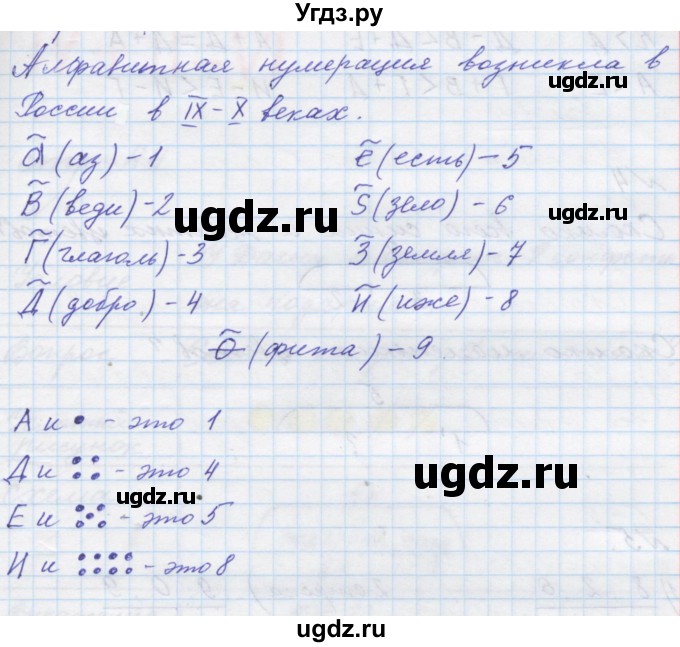 Угдз.ру
Алфавитная нумерация возникла в
России в IX-X веках.
А̃ (аз) - 1
Е̃ (есть) - 5
В̃ (веди) - 2
Ѕ̃ (зело) - 6
Г̃ (глаголь) - 3
З̃ (земля) - 7
Д̃ (добро) - 4
И̃ (иже) - 8
Ѳ̃ (фита) - 9
ugdz.ru
ugdz.ru
ugdz.ru
А и • - это 1
Д и :: - это 4
ugdz.ru
ugdz.ru
Е и ⁙ - это 5
И и :::: - это 8
ugdz.ru